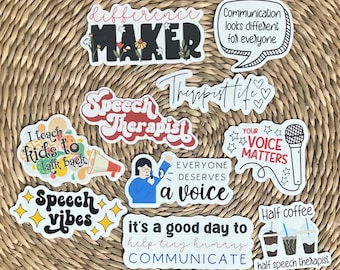 difference
MAKER
Communication
looks different
for everyone
Therapist life
Speech
Therapist
I teach
kids to
talk back
YOUR
VOICE
MATTERS
EVERYONE
DESERVES
a voice
Speech
vibes
it's a good day to
help tiny humans
COMMUNICATE
Half coffee
half speech therapist